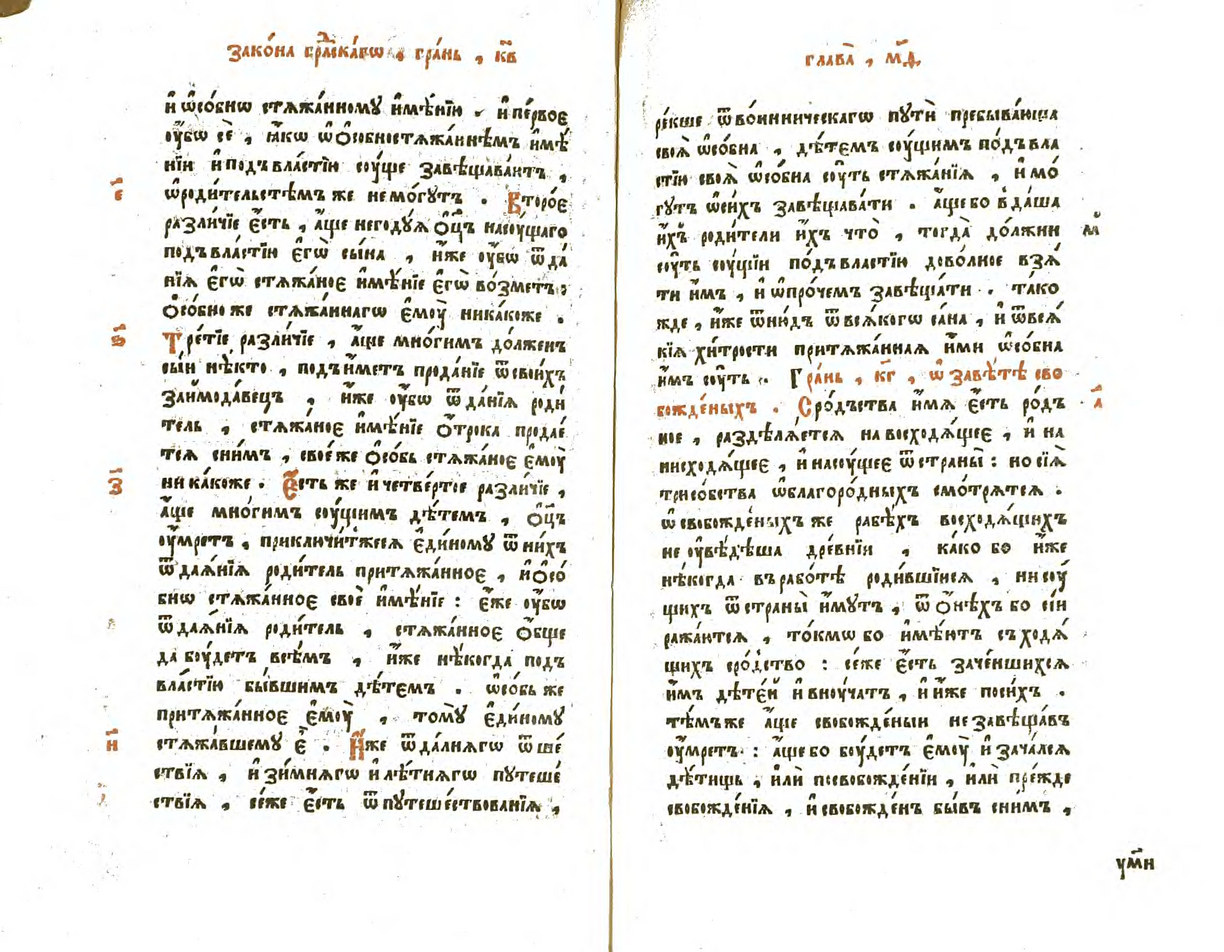 Зако́на гра́дскагѡ , гра́нь , к҃в
и҆ ѡ҆со́бнѡ стѧжа́нному и҆мѣ́нїю . и҆ пе́рвое
ᲂу҆́бѡ сѐ , ꙗ҆́кѡ ѡ҆ ѻ҆со́бностѧжа́ннѣмъ и҆мѣ́
нїи и҆ подъ вла́стїю сꙋ́ще завѣщава́ютъ ,
є҃
ѡ҆ роди́тельстѣмъ же не мо́гутъ . Второ́е
разли́чїе є҆́сть , а҆́ще негодꙋ́ѧ ѻ҆ц҃ъ на сꙋ́щаго
подъ вла́стїю є҆гѡ̀ сы́на , и҆́же ᲂу҆́бѡ ѿ да
нїѧ є҆гѡ̀ стѧжа́ное и҆мѣ́нїе є҆гѡ̀ во́зметъ :
ѻ҆со́бно же стѧжа́ннагѡ є҆мꙋ̀ ника́коже .
ѕ҃
Тре́тїе разли́чїе , а҆́ще мно́гимъ до́лженъ
сы́и нѣ́кто , подъи́метъ прода́нїе ѿ свои́хъ
заимода́вецъ , и҆́же ᲂу҆́бѡ ѿ да́нїѧ роди
тель , стѧжа́ное и҆мѣ́нїе ѻ҆́трока продае́
тсѧ сни́мъ , свое́ же ѻ҆со́бь стѧжа́ное є҆мꙋ̀
ника́коже . Є҆́сть же и҆ четве́ртое разли́чїе ,
з҃
а҆́ще мно́гимъ сꙋ́щимъ дѣ́темъ , ѻ҆ц҃ъ
ᲂу҆́мретъ , приключи́тжесѧ є҆ди́ному ѿ ни́хъ
ѿ даѧ́нїѧ роди́тель притѧжа́нное , и҆ ѻ҆со́
бнѡ стѧжа́нное своѐ и҆мѣ́нїе : є҆́же ᲂу҆́бѡ
ѿ даѧ́нїѧ роди́тель , стѧжа́нное ѻ҆́бще
да бꙋ́детъ всѣ́мъ , и҆́же нѣ́когда подъ
вла́стїю бы́вшимъ дѣ́темъ . ѡ҆со́бь же
притѧжа́нное є҆мꙋ̀ , томꙋ̀ є҆ди́ному
стѧжа́вшему є҆̀ . И҆́же ѿ да́лнѧгѡ ѿше
и҃
ствїѧ , и҆ зи́мнѧгѡ и҆ лѣ́тнѧгѡ путеше́
ствїѧ , се́же є҆́сть ѿ путеше́ствованїѧ ,
глава̀ , м҃д
ре́кше ѿ во́инническагѡ путѝ пребыва́юща
своѧ̀ ѡ҆со́бна , дѣ́темъ сꙋ́щимъ по́дъ вла
стїю своѧ̀ ѡ҆со́бна сꙋ́ть стѧжа́нїѧ , и҆ мо́
гутъ ѡ҆ си́хъ завѣщава́ти . а҆́ще бо в̾да́ша
и҆́хъ роди́тели и҆́хъ что̀ , тогда̀ до́лжни
сꙋ́ть сꙋ́щїи по́дъ вла́стїю дово́лное взѧ́
ти и҆̀мъ , и҆ ѡ҆ про́чемъ завѣща́ти . та́ко
жде , и҆́же ѿню́дъ ѿ всѧ́когѡ са́на , и҆ ѿ всѧ́
кїѧ хи́трости притѧжа́ннаѧ и҆́ми ѡ҆со́бна
и҆̀мъ сꙋ́ть . Гра́нь , к҃г , ѡ҆ завѣ́тѣ сво
божде́ныхъ . Сро́дъства и҆́мѧ є҆́сть ро́дъ
а҃
ное , раздѣлѧ́етсѧ на восходѧ́щее , и҆ на
нисходѧ́щее , и҆ на сꙋ́щее ѿ страны̀ : но сїѧ̀
трисо́бства ѡ҆ благоро́дныхъ смо́трѧтсѧ .
ѡ҆ свобожде́ныхъ же рабѣ́хъ восходѧ́щихъ
не ᲂу҆вѣ́дѣша дре́внїи , ка́ко бо и҆́же
нѣ́когда въ рабо́тѣ роди́вшїисѧ , ни сꙋ́
щихъ ѿ страны̀ и҆́мутъ , ѿ ѻ҆нѣ́хъ бо сїи
ража́ютсѧ , то́кмѡ бо и҆мѣ́ютъ съходѧ́
щихъ сро́дство : се́же є҆́сть заче́ншихсѧ
и҆̀мъ дѣте́й и҆ внꙋ́чатъ , и҆ и҆́же по си́хъ .
тѣ́мъже а҆́ще свобожде́ныи не завѣща́въ
ᲂу҆́мретъ : а҆́ще бо бꙋ́детъ є҆мꙋ̀ и҆ зача́лсѧ
дѣ́тищь , и҆лѝ посвобожде́нїи , и҆лѝ пре́жде
свобожде́нїѧ , и҆ свобожде́нъ бы́въ сни́мъ ,
ум҃и